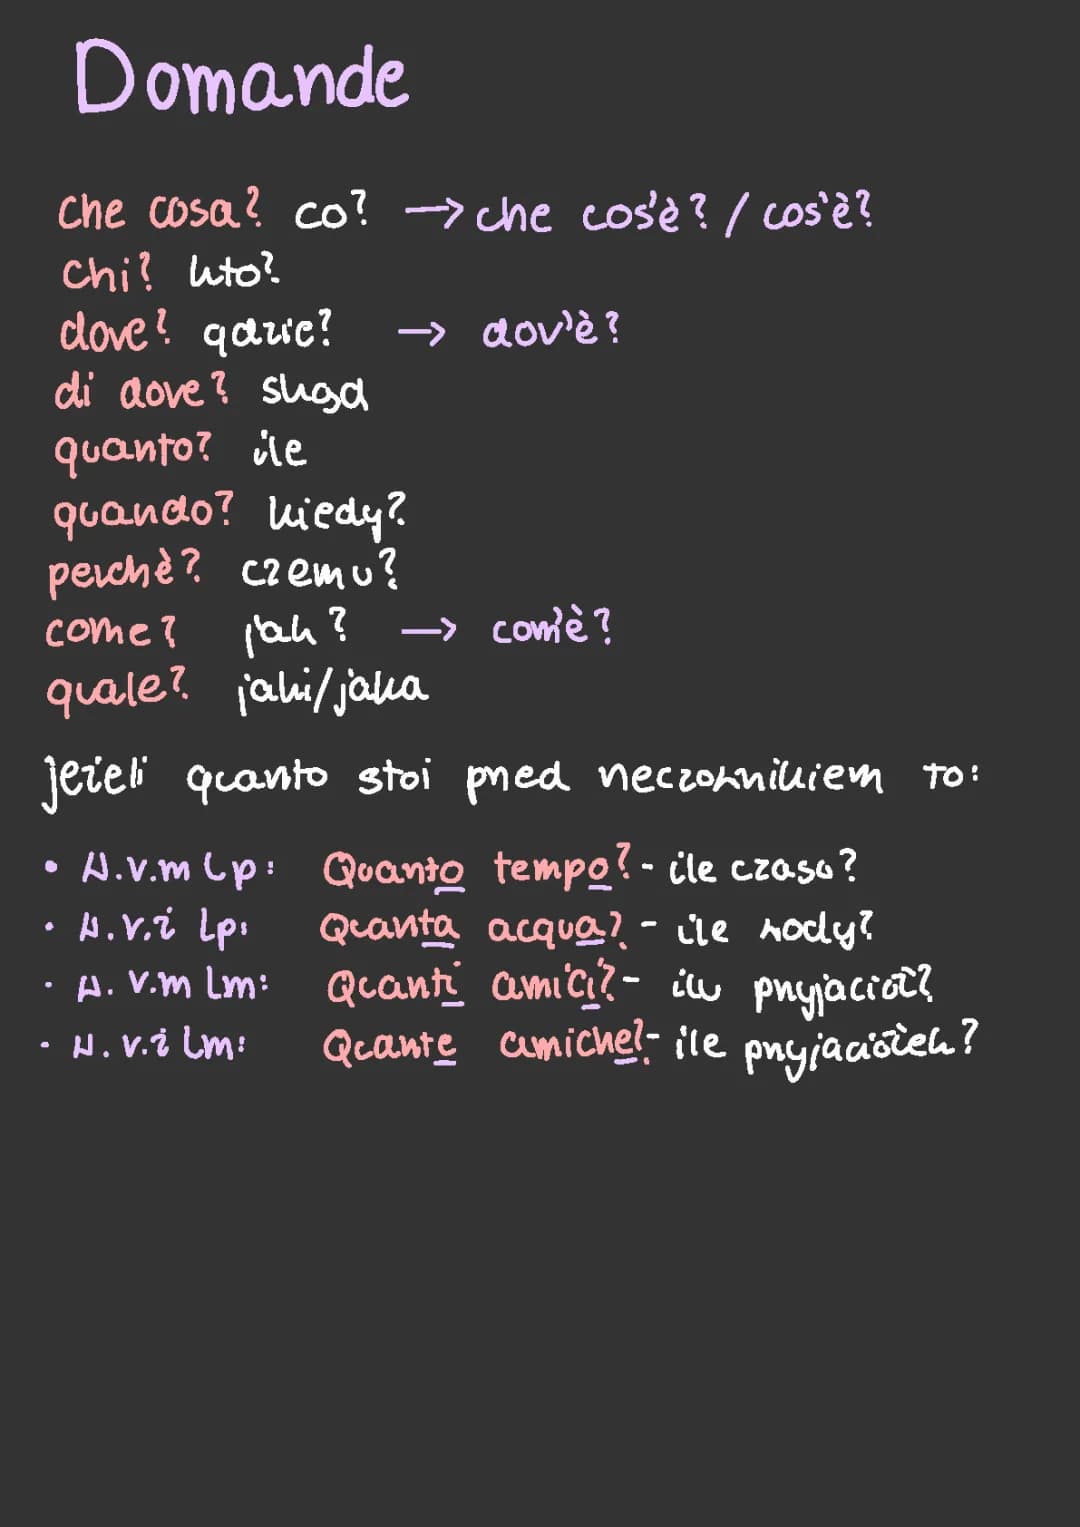 Domande
che cosa? co? → che cos'è? / cos'è?
Chi? kto?
dove? gdzie? → dov'è?
di dove? skąd
quanto? ile
quando? kiedy?
perchè? czemu?
come? jak? → com'è?
quale? jaki/jaka
jeżeli quanto stoi przed rzeczownikiem to:
• r.m Lp: Quanto tempo? - ile czasu?
• r.ż Lp: Quanta acqua? - ile wody?
• r.m Lm: Quanti amici? - ilu przyjaciół?
• r.ż Lm: Quante amiche? - ile przyjaciółek?